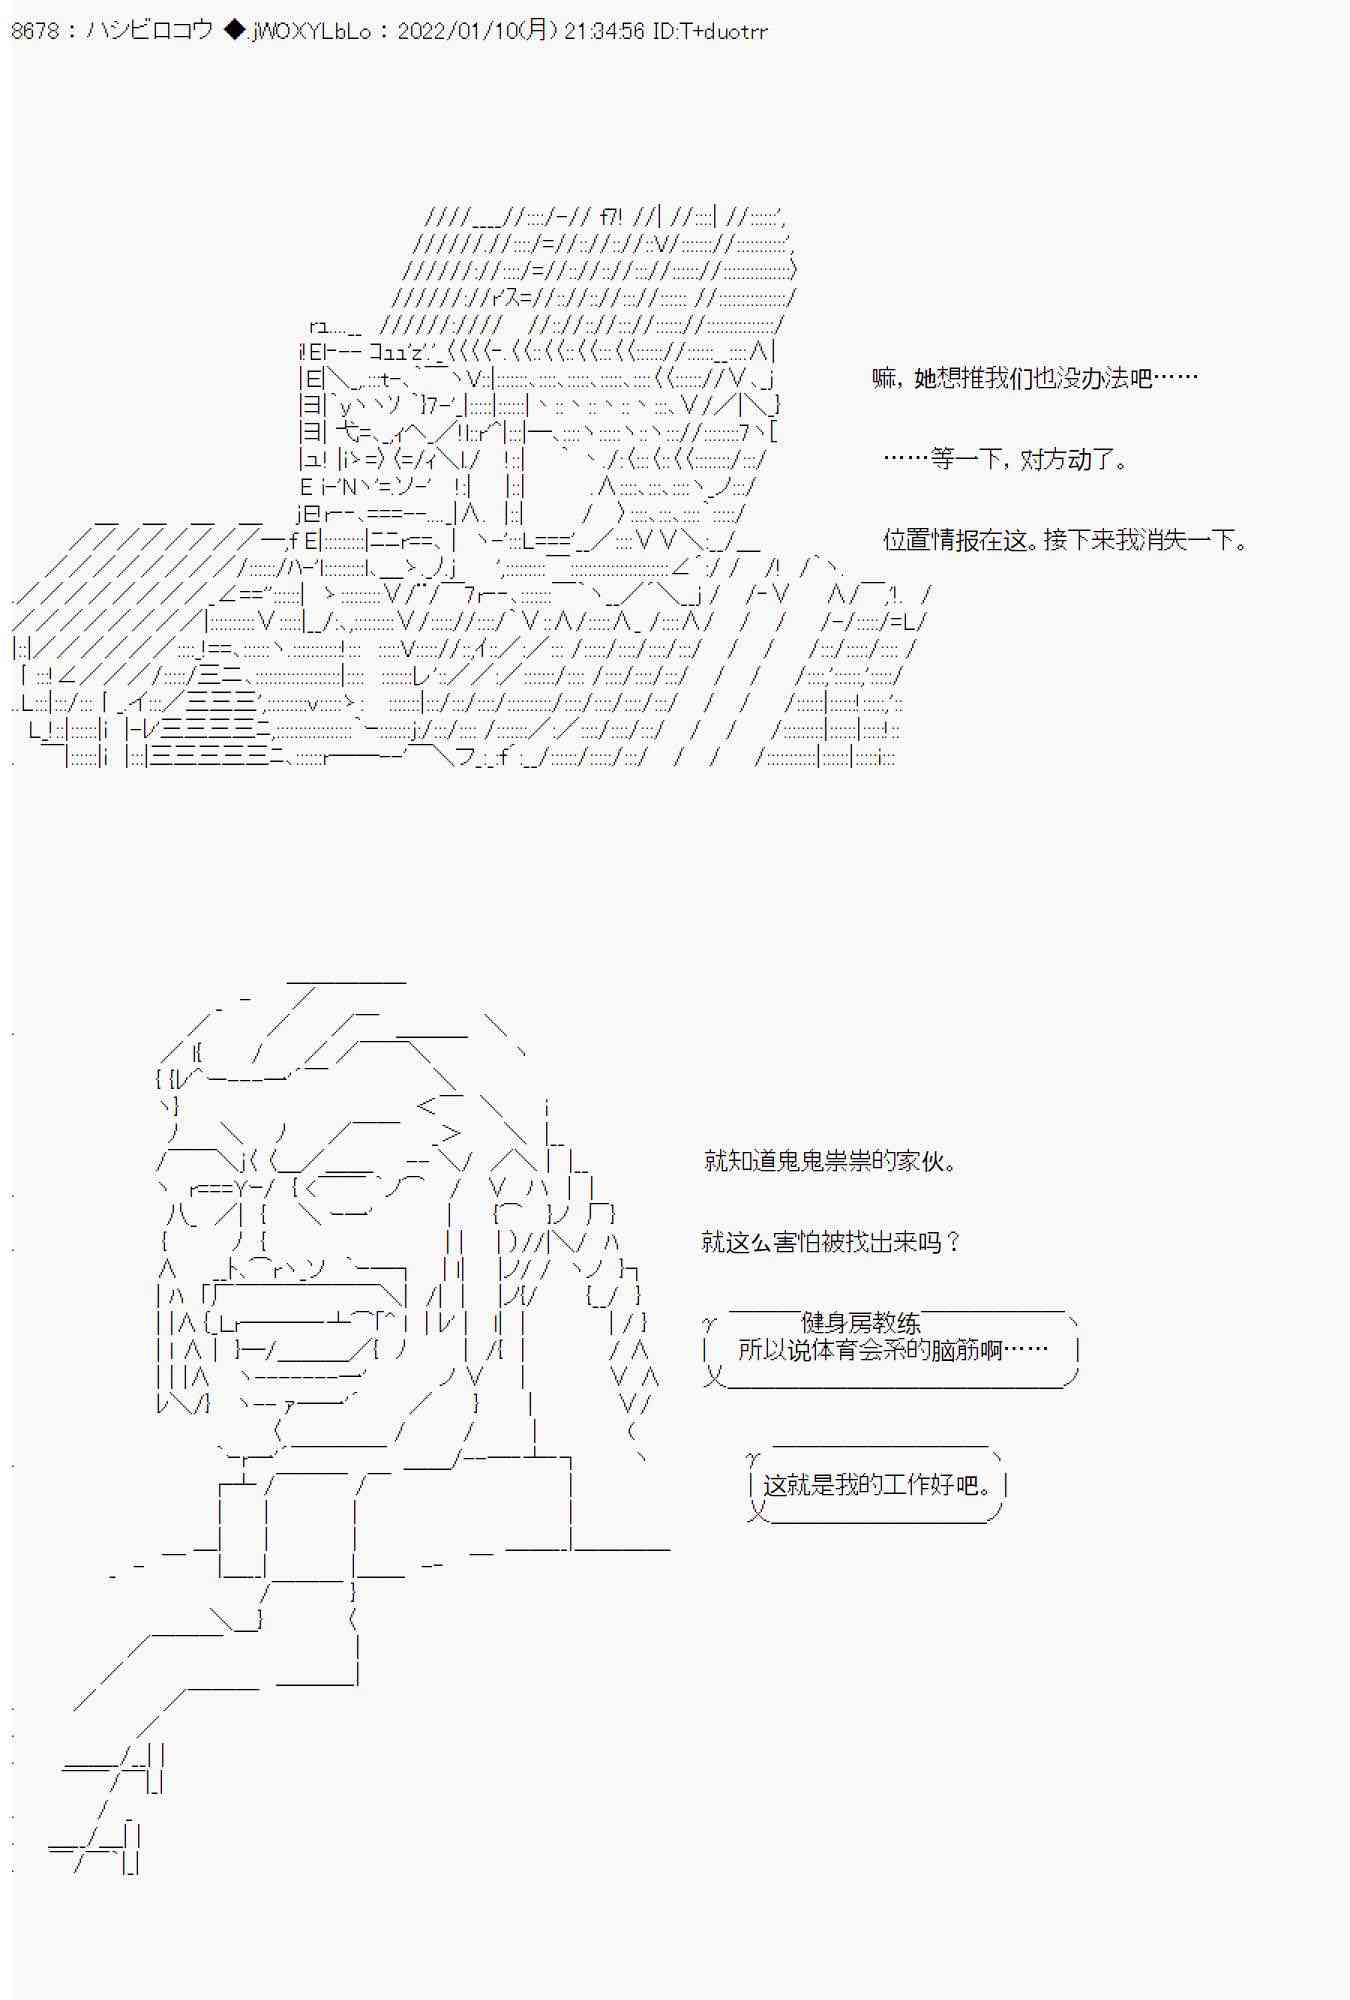 8678 : ハシビロコウ ◆.jWOXYLbLo : 2022/01/10(月) 21:34:56 ID:T+duotrr
嘛，她想推我们也没办法吧……
……等一下，对方动了。
位置情报在这。接下来我消失一下。
就知道鬼鬼祟祟的家伙。
就这么害怕被找出来吗？
健身房教练
所以说体育会系的脑筋啊……
这就是我的工作好吧。